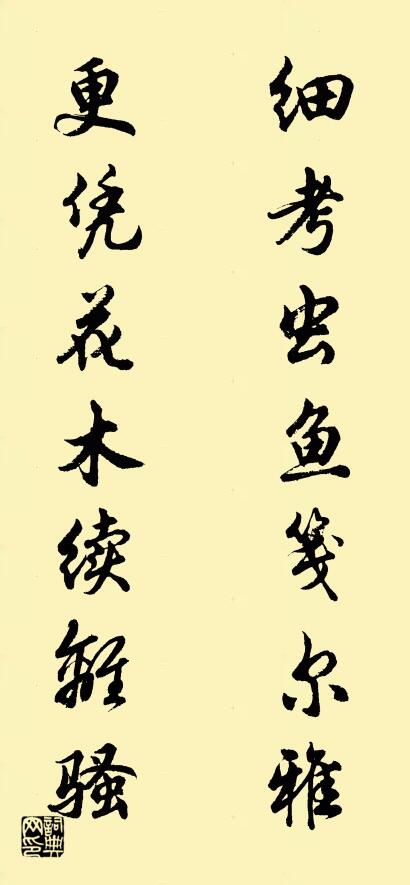 细考虫鱼笺尔雅
更凭花木续离骚
词典网印